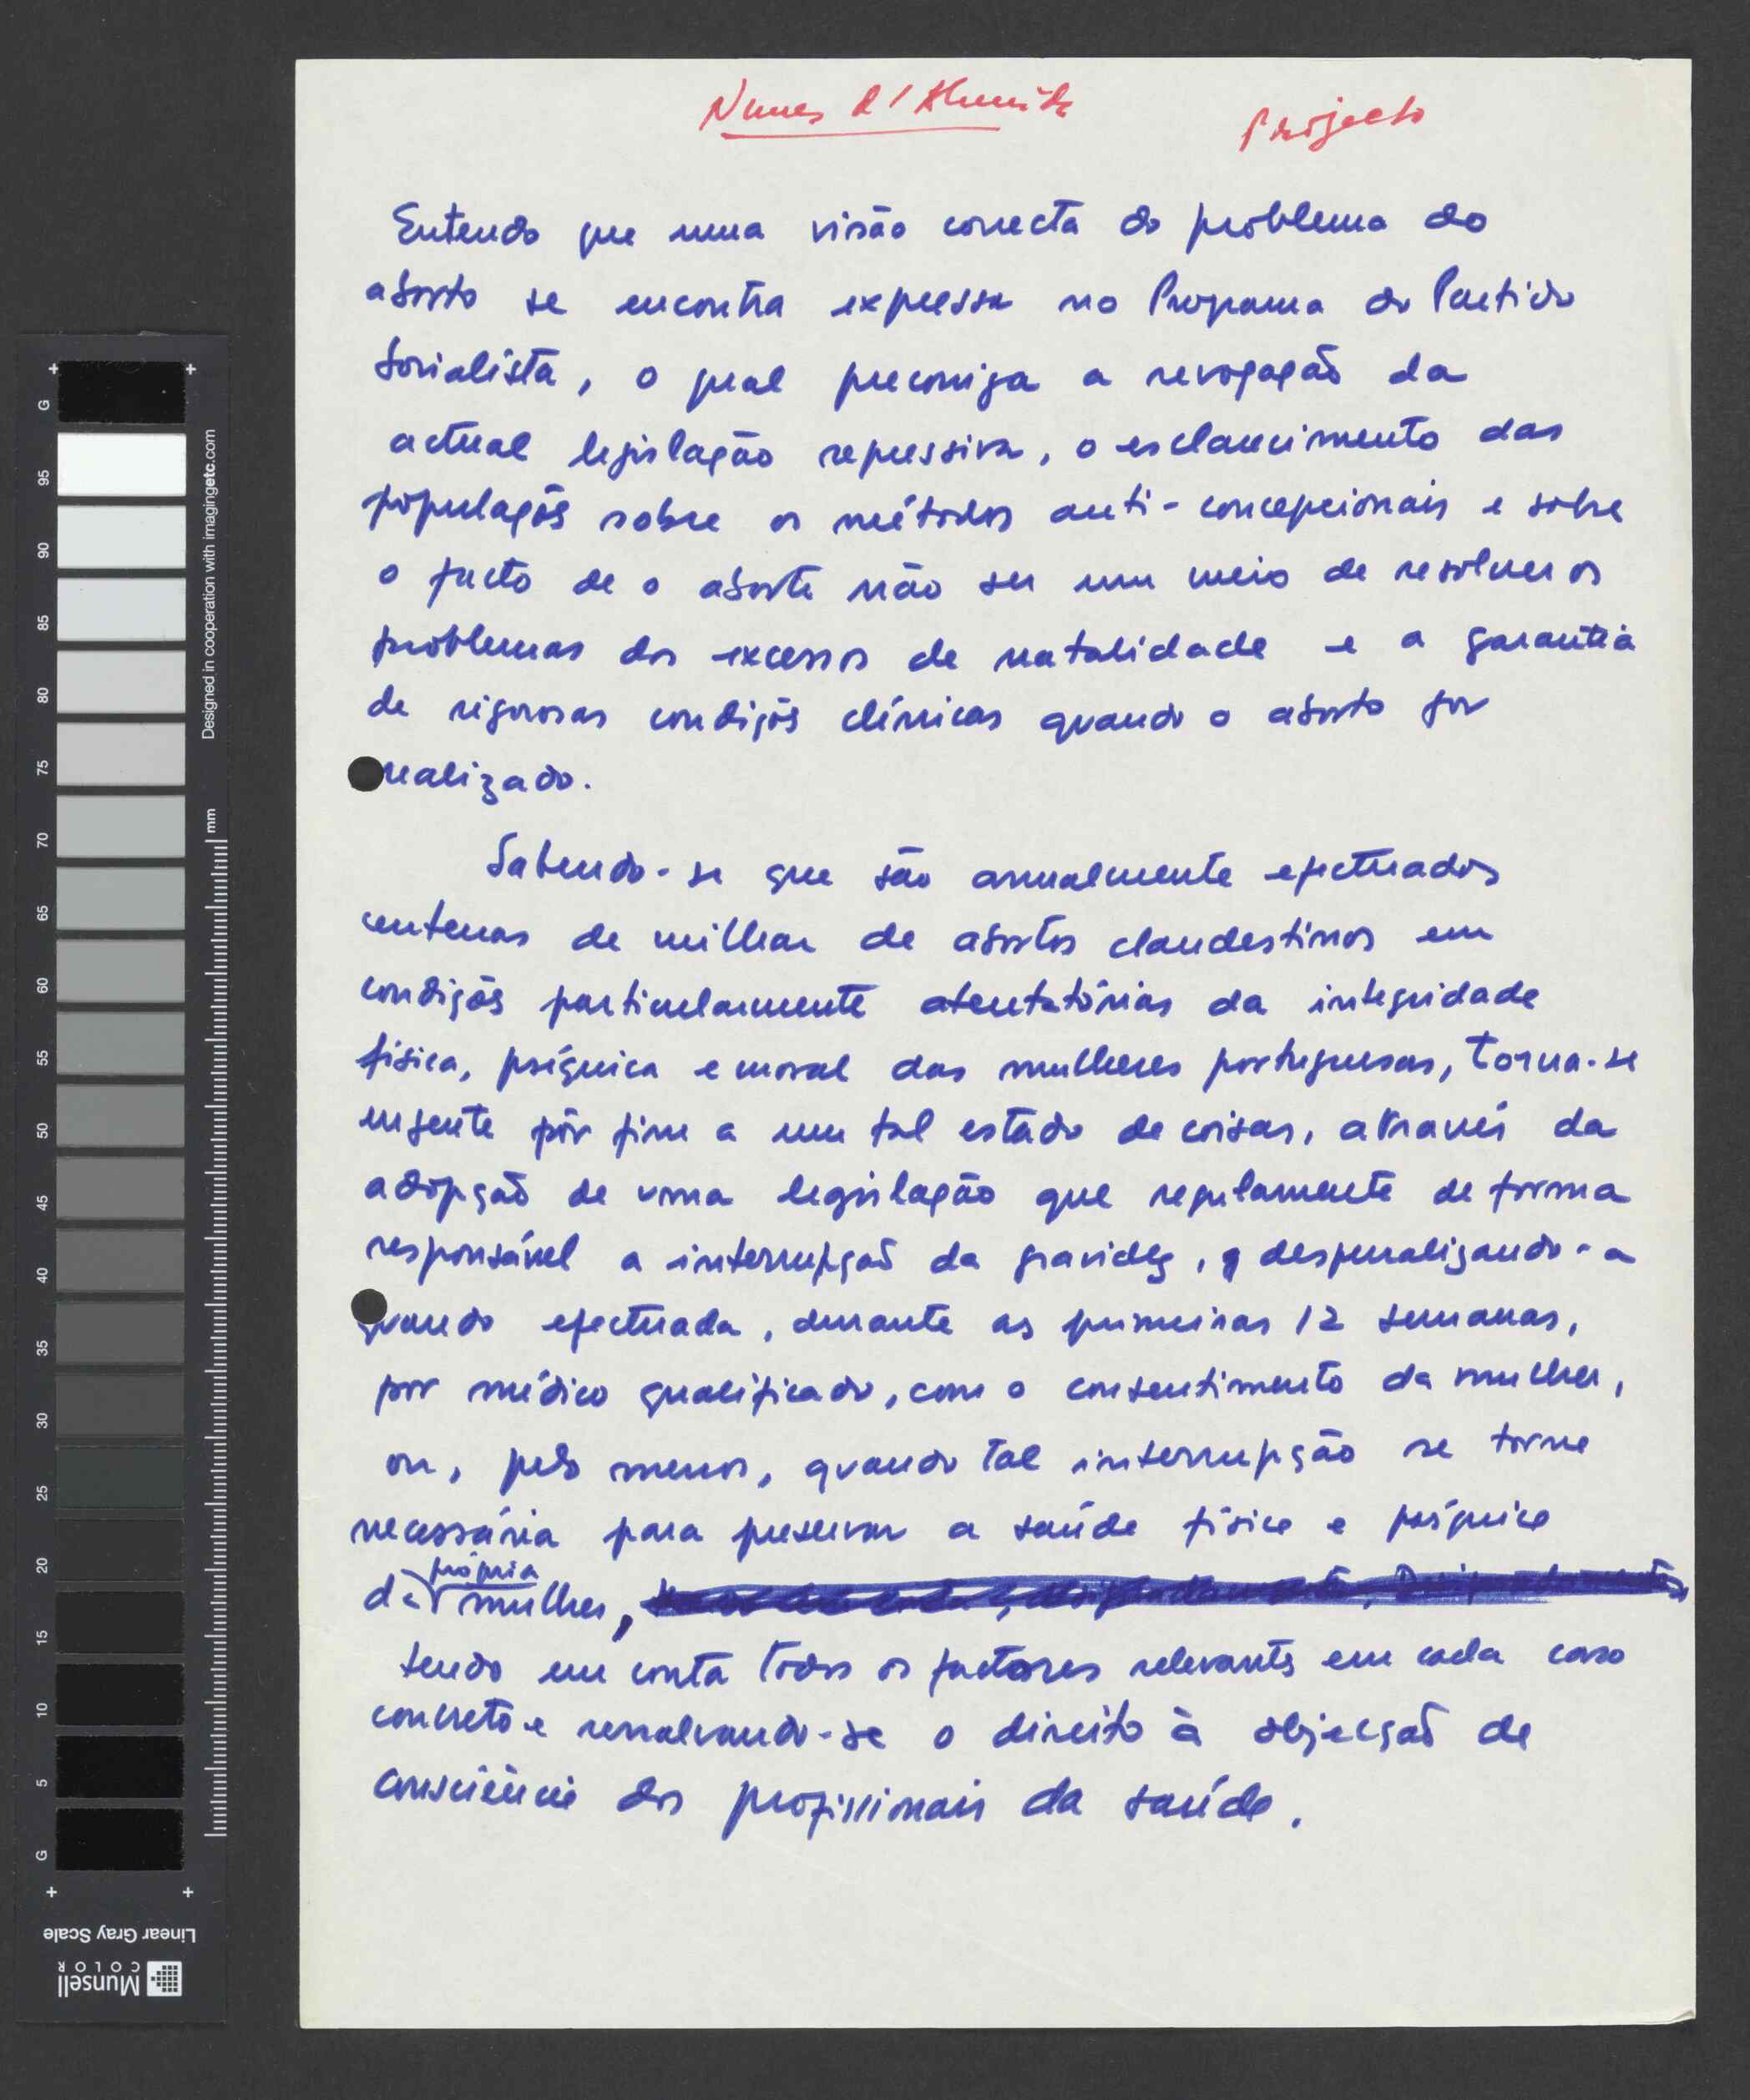 Nunes d'Almeida
Projecto
Entendo que uma visão correcta do problema do
aborto se encontra expressa no Programa do Partido
Socialista, o qual preconiza a revogação da
actual legislação repressiva, o esclarecimento das
populações sobre os métodos anti-concepcionais e sobre
o facto de o aborto não ser um meio de resolver os
problemas dos excessos de natalidade e a garantia
de rigorosas condições clínicas quando o aborto for
realizado.
Sabendo-se que são anualmente efectuados
centenas de milhar de abortos clandestinos em
condições particularmente atentatórias da integridade
física, psíquica e moral das mulheres portuguesas, torna-se
urgente pôr fim a um tal estado de coisas, através da
adopção de uma legislação que regulamente de forma
responsável a interrupção da gravidez, despenalizando-a
quando efectuada, durante as primeiras 12 semanas,
por médico qualificado, com o consentimento da mulher,
ou, pelo menos, quando tal interrupção se torne
necessária para preservar a saúde física e psíquica
da própria mulher,
tendo em conta todos os factores relevantes em cada caso
concreto e ressalvando-se o direito à objecção de
consciência dos profissionais da saúde.
Designed in cooperation with imagingetc.com
mm
G
95
90
85
80
75
70
65
60
55
50
45
40
35
30
25
20
15
10
5
G
Linear Gray Scale
Munsell
COLOR